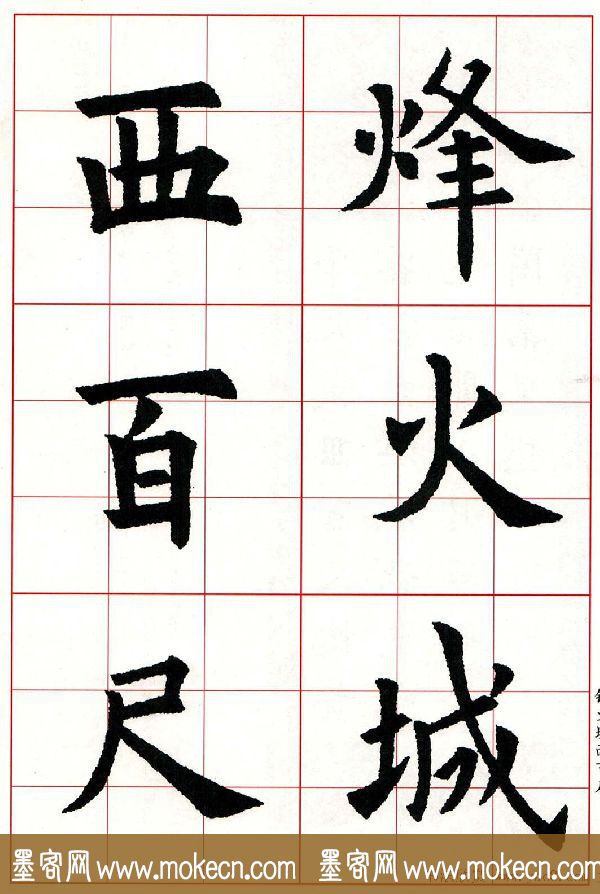 烽火城
西百尺
墨客网 www.mokecn.com 墨客网 www.mokecn.com